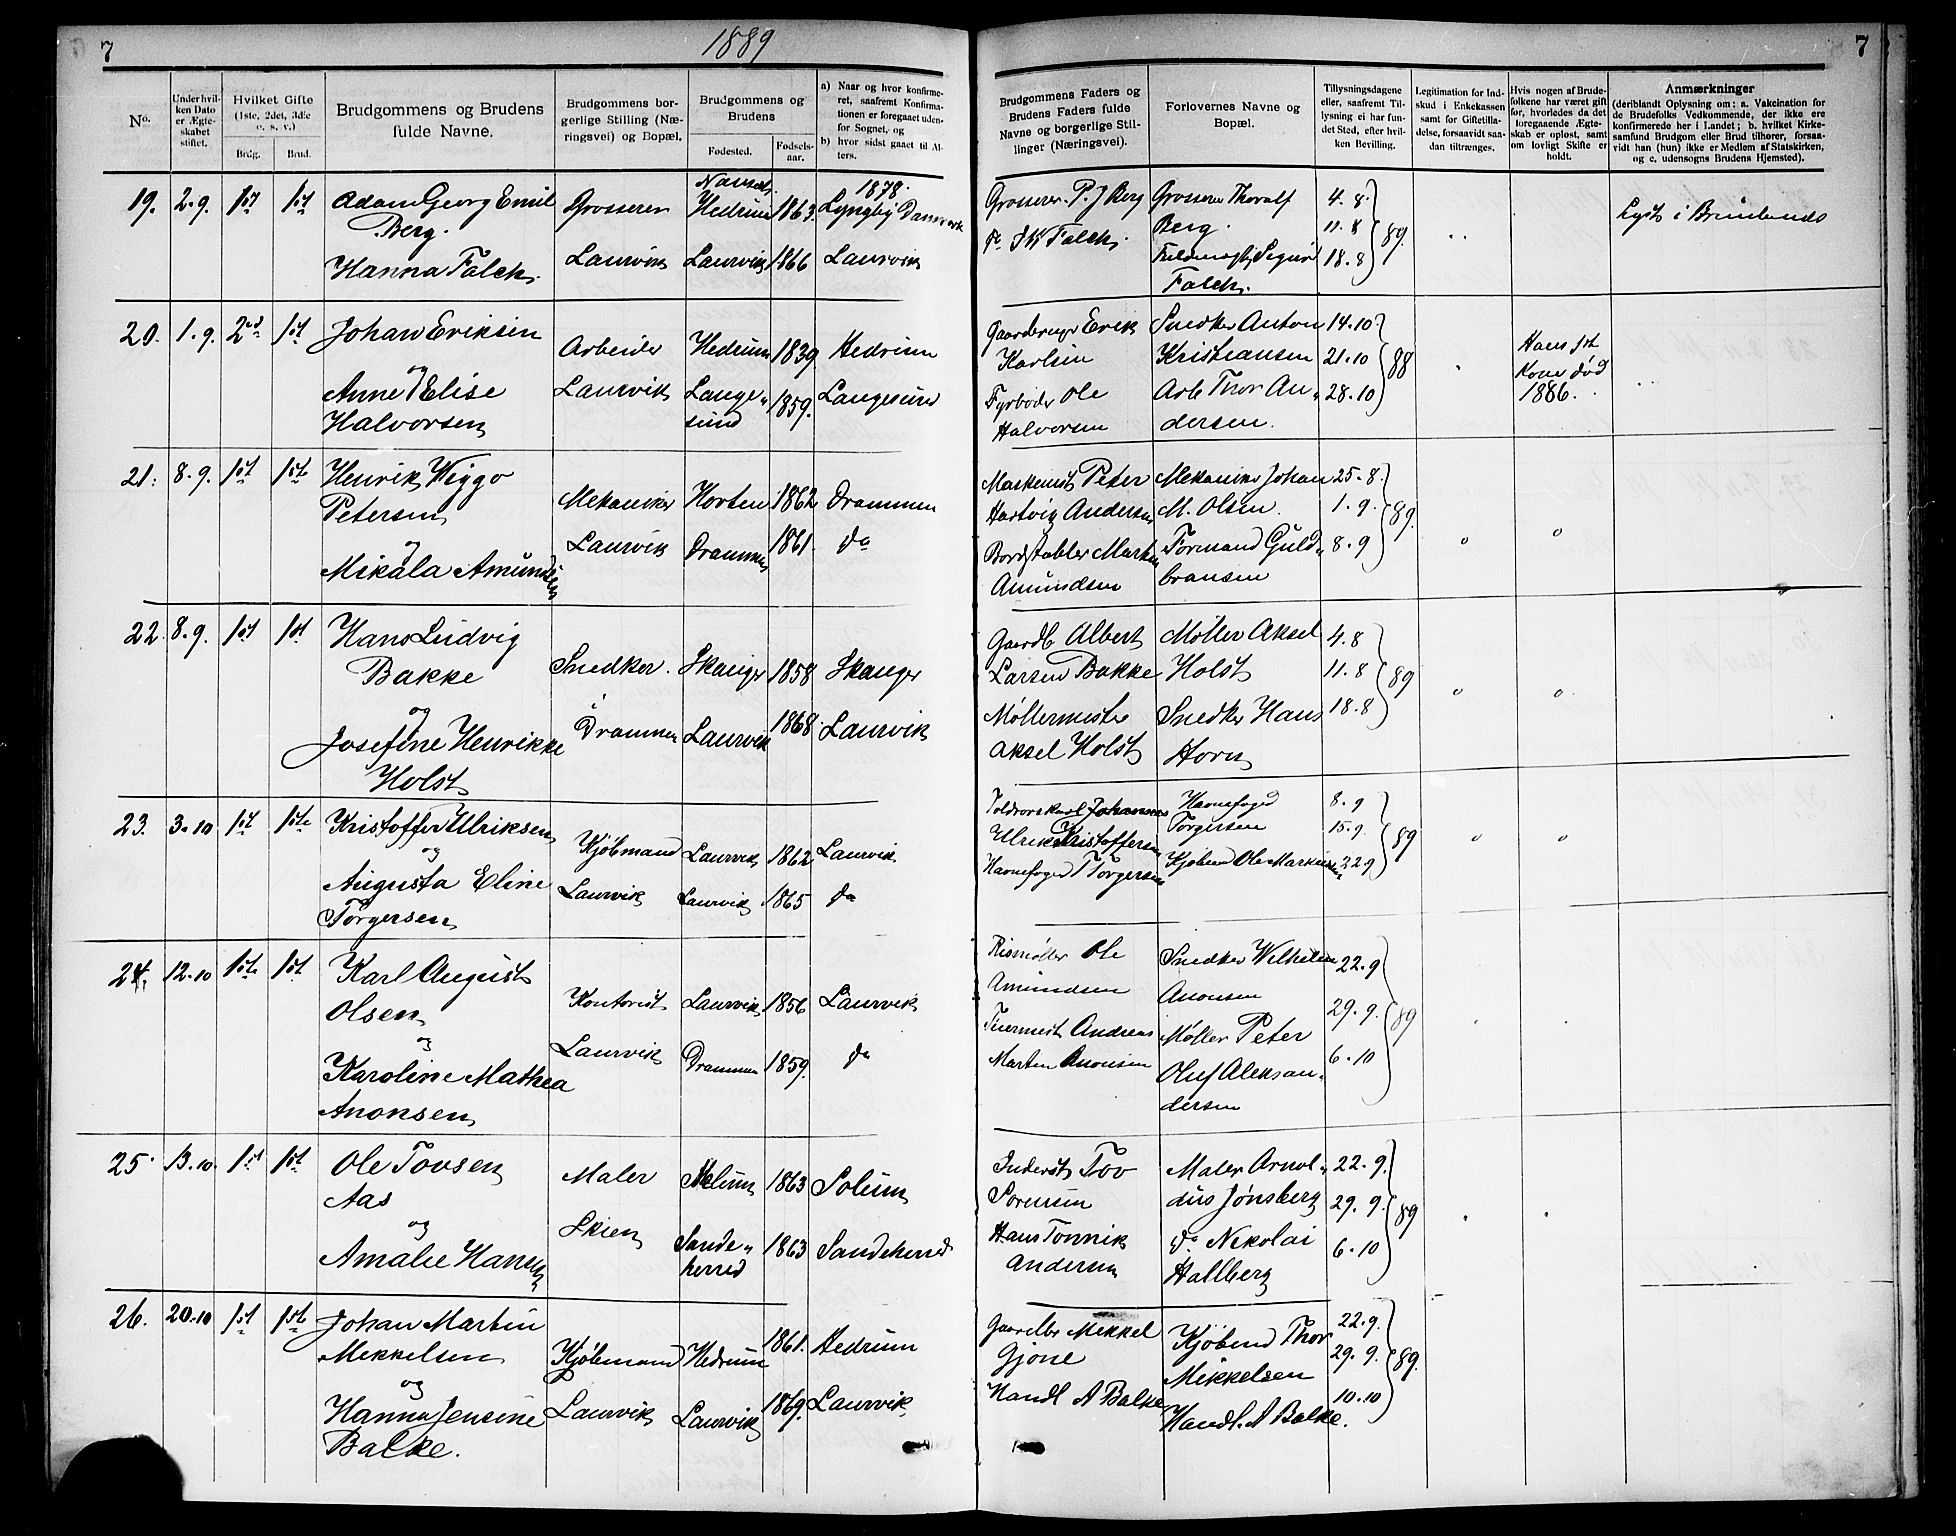 7
1889
7
No.
Under hvilken Dato er Ægteskabet stiftet.
Hvilket Gifte (1ste, 2det, 3die o. s. v.)
Brdg.
Brud.
Brudgommens og Brudens fulde Navne.
Brudgommens borgerlige Stilling (Næringsvei) og Bopæl.
Brudgommens og Brudens
Fødested.
Fødselsaar.
a) Naar og hvor konfirmeret, saafremt Konfirmationen er foregaaet udenfor Sognet, og
b) hvor sidst gaaet til Alters.
Brudgommens Faders og Brudens Faders fulde Navne og borgerlige Stillinger (Næringsvei).
Forlovernes Navne og Bopæl.
Tillysningsdagene eller, saafremt Tillysning ei har fundet Sted, efter hvilken Bevilling.
Legitimation for Indskud i Enkekassen samt for Giftetilladelse, forsaavidt saadan tiltrænges.
Hvis nogen af Brudefolkene har været gift før, hvorledes da det foregaaende Ægteskab er opløst, samt om lovligt Skifte er holdt.
Anmærkninger
(deriblandt Oplysning om: a. Vakcination for de Brudefolks Vedkommende, der ikke ere konfirmerede her i Landet; b. hvilket Kirkesamfund Brudgom eller Brud tilhører, forsaavidt han (hun) ikke er Medlem af Statskirken, og c. udensogns Brudens Hjemsted).
19. 2.9. 1st 1st
Adam Georg Emil
Berg.
Hanna Falck.
Grosserer
Laurvik
Hedrum 1863
Laurvik 1866
1878.
Lyngby Danmark
Laurvik
Grosserer P. J Berg
do J K Falck.
Grosserer Thoralf
Berg.
Falck.
4.8.
11.8
18.8
89.
20. 1.9. 2ed 1st
Johan Eriksen
og
Anne Elise
Halvorsen
Arbeider
Laurvik
Hedrum 1839
Lange-
sund 1859.
Hedrum
Langesund
Gaardbruger Erik
Karlsen
Fyrbøder Ole
Halvorsen
Snedker Anton
Kristiansen
Arb Thor An-
dersen.
14.10
21.10
28.10
88
Hans 1st
Kone død
1886.
21. 8.9. 1st 1ste
Henrik Wiggo
Petersen
og
Mikala Amundsen
Mekaniker
Laurvik
Horten 1862
Drammen 1861.
Drammen
do
Maskinist Peter
Hartvig Andersen
Bordstabler Marten
Amundsen
Mekaniker Johan
M. Olsen.
Formand Guld-
bransen
25.8.
1.9.
8.9
89.
22. 8.9. 1st 1st
Hans Ludvig
Bakke
og
Josefine Henrikke
Holst
Snedker
i
Drammen
Skauger 1858
Laurvik 1868.
Skauger
Laurvik
Gaardb Albert
Larsen Bakke
Møllermester
Aksel Holst
Møller Aksel
Holst
Snedker Hans
Horn
4.8
11.8
18.8
89
23. 3.10 1st 1ste
Kristoffer Ulriksen
og
Augusta Eline
Torgersen
Kjøbmand
Laurvik
Laurvik 1862
Laurvik 1865
Laurvik.
do
Johannes
Ulrik Kristoffersen
Havnefoged T Torgersen
Havnefoged
Torgersen
Kjøbmd Ole Markusen
8.9
15.9.
22.9
89
24. 12.10 1ste 1st
Karl August
Olsen
og
Karoline Mathea
Anonsen
Kontorist
Laurvik
Laurvik 1856
Drammen 1859.
Laurvik
do
Rismøller Ole
Amundsen
Andreas
Marten Anonsen
Snedker Wilhelm
Anonsen
Møller Peter
Oluf Aleksan-
dersen
22.9
29.9.
6.10
89
25. 13.10. 1st 1st
Ole Tovsen
Aas
og
Amalie Hansen
Maler
Skien
Melum 1863
Sande-
herred 1863
Solum
Sandeherred
Inderst Tov
Sorensen
Hans Tonnik
Andersen
Maler Arnol-
dus Jønsberg
do Nikolai
Hallberg
22.9.
29.9.
6.10
89
26. 20.10 1st 1ste
Johan Martin
Mekkelsen
og
Hanna Jensine
Balke.
Kjøbmand
Laurvik
Hedrum 1861.
Laurvik 1869.
Hedrum
Laurvik
Gaardbr Mekkel
Gjone
Handl A Balke
Kjøbmd Thor
Mikkelsen
Handl. A Balke.
22.9.
29.9.
10.10
89.